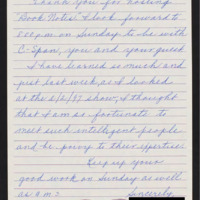 Thank you for hosting
Book Notes. I look forward to
8:00 p.m. on Sunday to be with
C-Span, you and your guest.
I have learned so much and
just last week, as I looked
at the 6/6/93 show, I thought
that I am so fortunate to
meet such intelligent people
and be privy to their expertise.
Keep up your
good work on Sunday as well
as a.m.!
Sincerely,